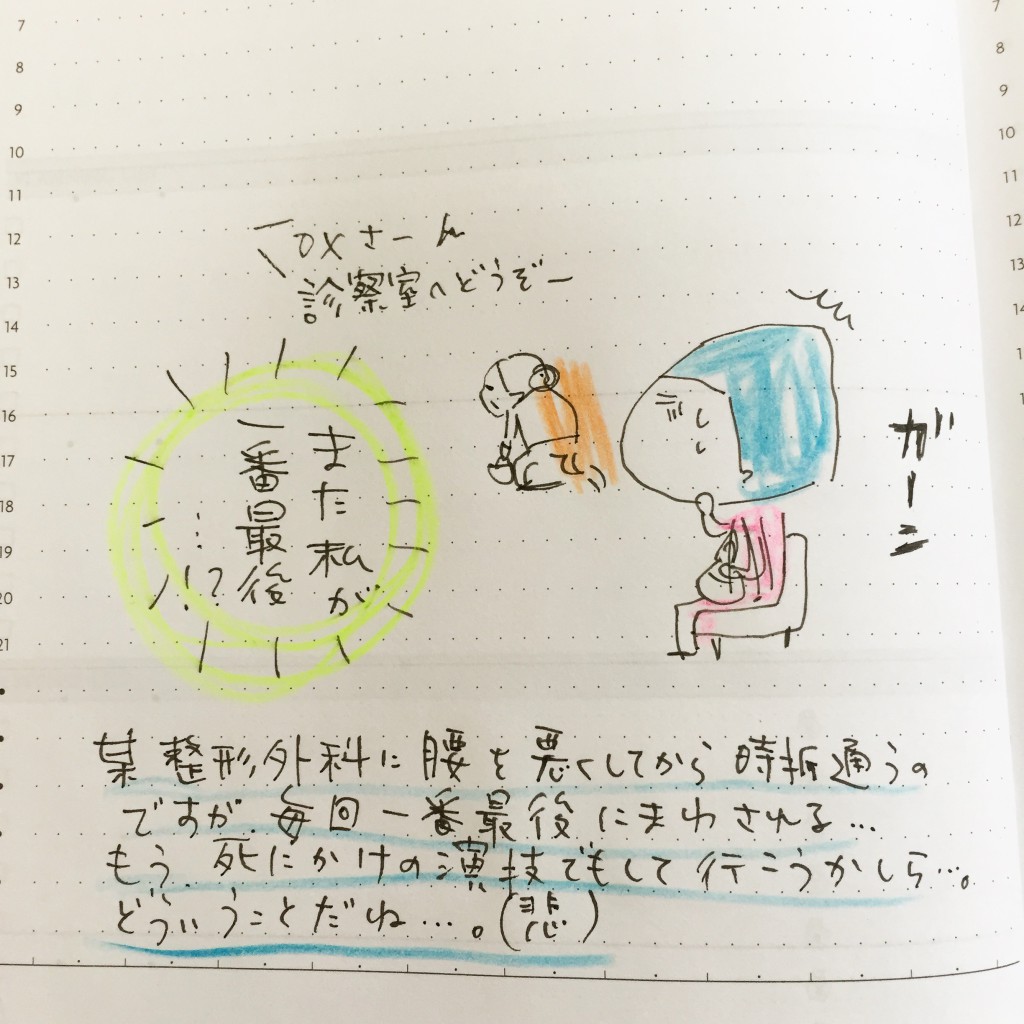 7
8
9
10
11
12
13
14
15
16
17
18
19
20
21
7
8
9
10
11
12
13
14
○×さーん
診察室へどうぞー
また私が
一番最後
…!?
ガーン
某整形外科に腰を悪くしてから時折通うの
ですが、毎回一番最後にまわされる…
もう、死にかけの演技でもして行こうかしら…。
どういうことだね…。(悲)